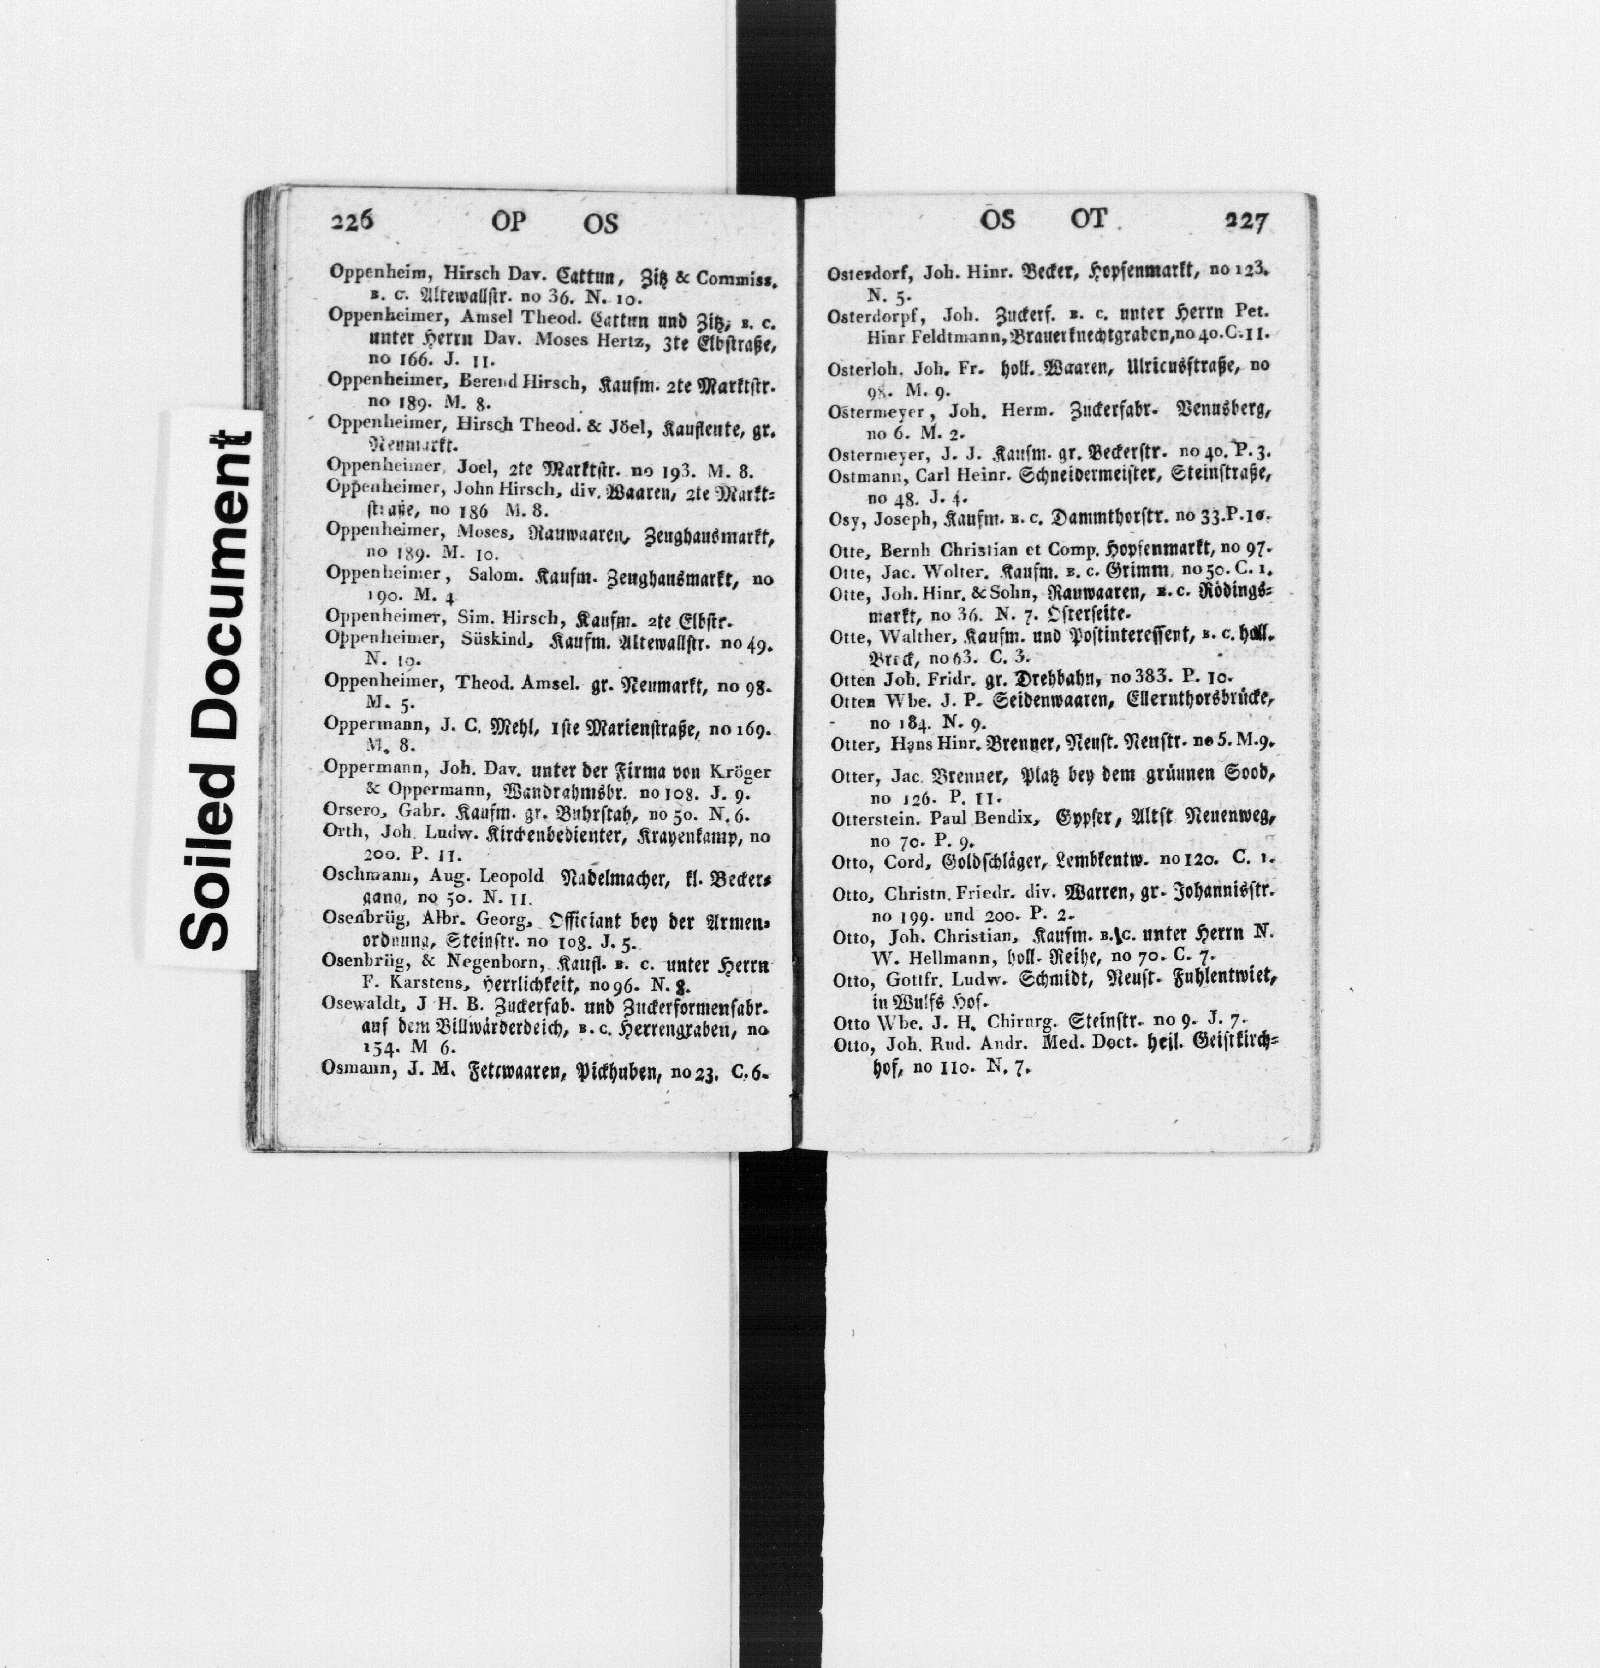 Soiled Document
226 OP OS
Oppenheim, Hirsch Dav. Cattun, Zitz & Commiss.
B. C. Altewallstr. no 36. N. 10.
Oppenheimer, Amsel Theod. Cattun und Zitz, B. C.
unter Herrn Dav. Moses Hertz, 3te Elbstraße,
no 166. J. 11.
Oppenheimer, Berend Hirsch, Kaufm. 2te Marktstr.
no 189. M. 8.
Oppenheimer, Hirsch Theod. & Jöel, Kaufleute, gr.
Neumarkt.
Oppenheimer, Joel, 2te Marktstr. no 193. M. 8.
Oppenheimer, John Hirsch, div. Waaren, 2te Markt=
straße, no 186 M. 8.
Oppenheimer, Moses, Rauwaaren, Zeughausmarkt,
no 189. M. 10.
Oppenheimer, Salom. Kaufm. Zeughausmarkt, no
190. M. 4
Oppenheimer, Sim. Hirsch, Kaufm. 2te Elbstr.
Oppenheimer, Süskind, Kaufm. Altewallstr. no 49.
N. 10.
Oppenheimer, Theod. Amsel. gr. Neumarkt, no 98.
M. 5.
Oppermann, J. C. Mehl, 1ste Marienstraße, no 169.
M. 8.
Oppermann, Joh. Dav. unter der Firma von Kröger
& Oppermann, Wandrahmsbr. no 108. J. 9.
Orsero, Gabr. Kaufm. gr. Buhrstah, no 50. N. 6.
Orth, Joh. Ludw. Kirchenbedienter, Krayenkamp, no
200. P. 11.
Oschmann, Aug. Leopold Nadelmacher, kl. Becker=
gang, no 50. N. 11.
Osenbrüg, Albr. Georg, Officiant bey der Armen=
ordnung, Steinstr. no 108. J. 5.
Osenbrüg, & Negenborn, Kaufl. B. C. unter Herrn
F. Karstens, Herrlichkeit, no 96. N. 8.
Osewaldt, J H. B. Zuckerfab. und Zuckerformenfabr.
auf dem Billwärderdeich, B. C. Herrengraben, no
154. M 6.
Osmann, J. M. Fettwaaren, Pickhuben, no 23. C. 6.
OS OT 227
Osterdorf, Joh. Hinr. Becker, Hopfenmarkt, no 123.
N. 5.
Osterdorpf, Joh. Zuckerf. B. C. unter Herrn Pet.
Hinr Feldtmann, Brauerknechtgraben, no 40. C. 11.
Osterloh, Joh. Fr. holl. Waaren, Ulricusstraße, no
98. M. 9.
Ostermeyer, Joh. Herm. Zuckerfabr. Venusberg,
no 6. M. 2.
Ostermeyer, J. J. Kaufm. gr. Beckerstr. no 40. P. 3.
Ostmann, Carl Heinr. Schneidermeister, Steinstraße,
no 48. J. 4.
Osy, Joseph, Kaufm. B. C. Dammthorstr. no 33. P. 10.
Otte, Bernh Christian et Comp. Hopfenmarkt, no 97.
Otte, Jac. Wolter. Kaufm. B. C. Grimm, no 50. C. 1.
Otte, Joh. Hinr. & Sohn, Rauwaaren, B. C. Rödings=
markt, no 36. N. 7. Osterseite.
Otte, Walther, Kaufm. und Postinteressent, B. C. holl.
Brock, no 63. C. 3.
Otten Joh. Fridr. gr. Drehbahn, no 383. P. 10.
Otten Wbe. J. P. Seidenwaaren, Ellernthorsbrücke,
no 184. N. 9.
Otter, Hans Hinr. Brenner, Neust. Neustr. no 5. M. 9.
Otter, Jac. Brenner, Platz bey dem grünnen Sood,
no 126. P. 11.
Otterstein. Paul Bendix, Gypser, Altst Neuenweg,
no 70. P. 9.
Otto, Cord, Goldschläger, Lembkentw. no 120. C. 1.
Otto, Christn. Friedr. div. Warren, gr. Johannisstr.
no 199. und 200. P. 2.
Otto, Joh. Christian, Kaufm. B. C. unter Herrn N.
W. Hellmann, holl. Reihe, no 70. C. 7.
Otto, Gottfr. Ludw. Schmidt, Neust. Fuhlentwiet,
in Wulfs Hof.
Otto Wbe. J. H. Chirurg. Steinstr. no 9. J. 7.
Otto, Joh. Rud. Andr. Med. Doct. heil. Geistkirch=
hof, no 110. N. 7.